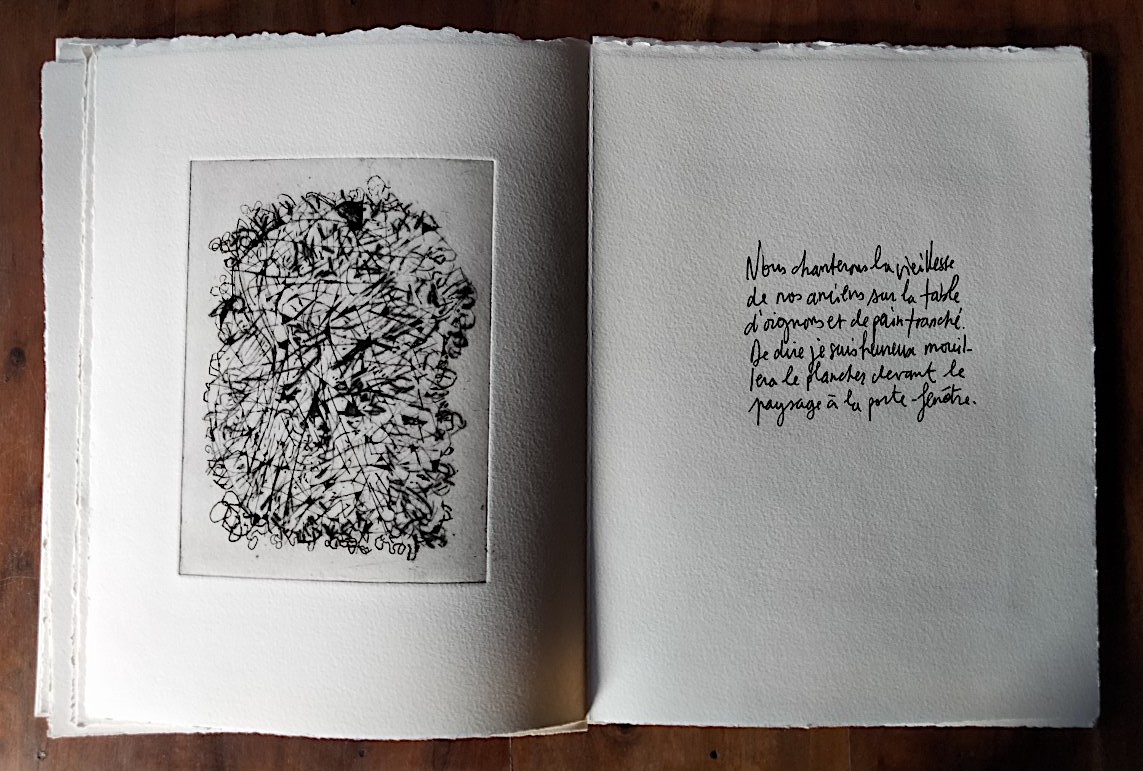 Nous chanterons la vieillesse
de nos anciens sur la table
d'oignons et de pain tranché.
De dire je suis heureux mouil-
lera le plancher devant le
paysage à la porte-fenêtre.